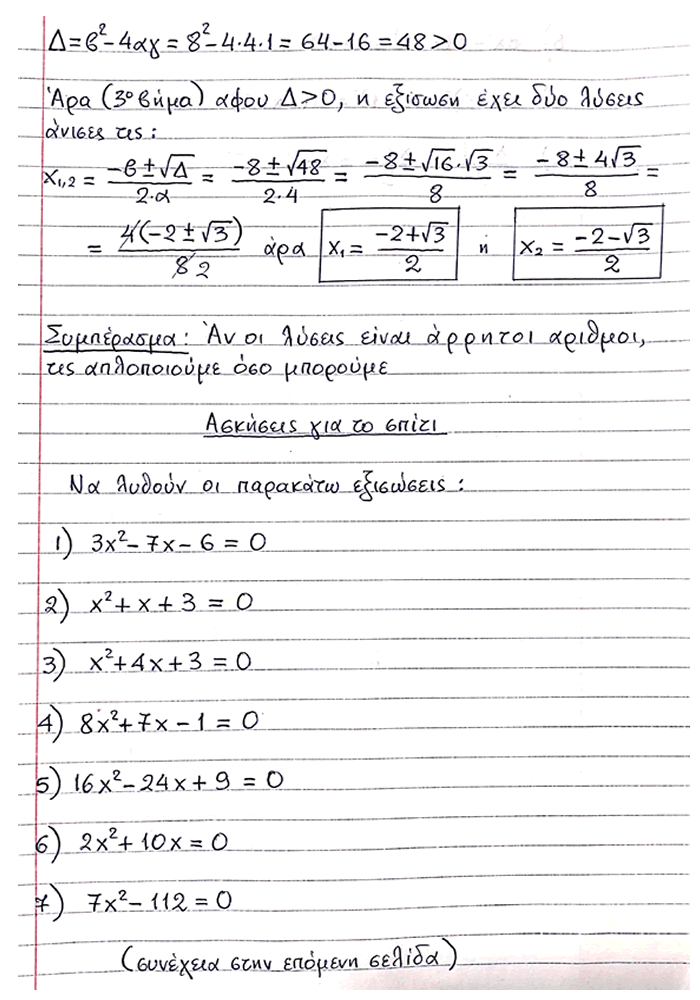 Δ=β²-4αγ = 8²-4·4·1 = 64-16 = 48 > 0
Άρα (3ο βήμα) αφου Δ>0, η εξίσωση έχει δύο λύσεις
άνισες τις:
x₁,₂ = (-β ± √Δ)/(2·α) = (-8 ± √48)/(2·4) = (-8 ± √16·√3)/8 = (-8 ± 4√3)/8 =
= 4(-2 ± √3)/8 2 άρα x₁ = (-2+√3)/2 ή x₂ = (-2-√3)/2
Συμπέρασμα: Αν οι λύσεις είναι άρρητοι αριθμοι,
τις απλοποιούμε όσο μπορούμε
Ασκήσεις για το σπίτι
Να λυθούν οι παρακάτω εξισώσεις:
1) 3x²-7x-6=0
2) x²+x+3=0
3) x²+4x+3=0
4) 8x²+7x-1=0
5) 16x²-24x+9=0
6) 2x²+10x=0
7) 7x²-112=0
(συνέχεια στην επόμενη σελίδα)